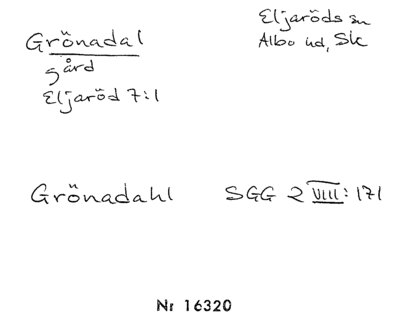 Grönadal
gård
Eljaröd 7:1
Eljaröds sn
Albo hd, Sk
Grönadahl SGG 2 VIII: 171
Nr 16320